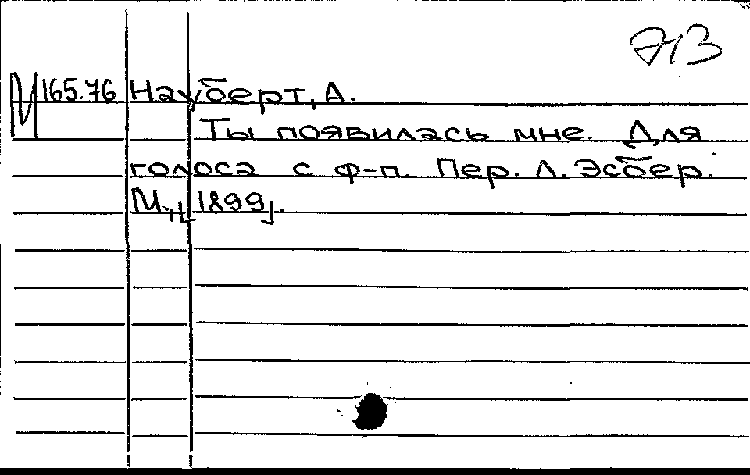 713
М 165.76 Науберт, А.
Ты появилась мне. Для
голоса с ф-п. Пер. Л. Эсбер.
М., [1899].